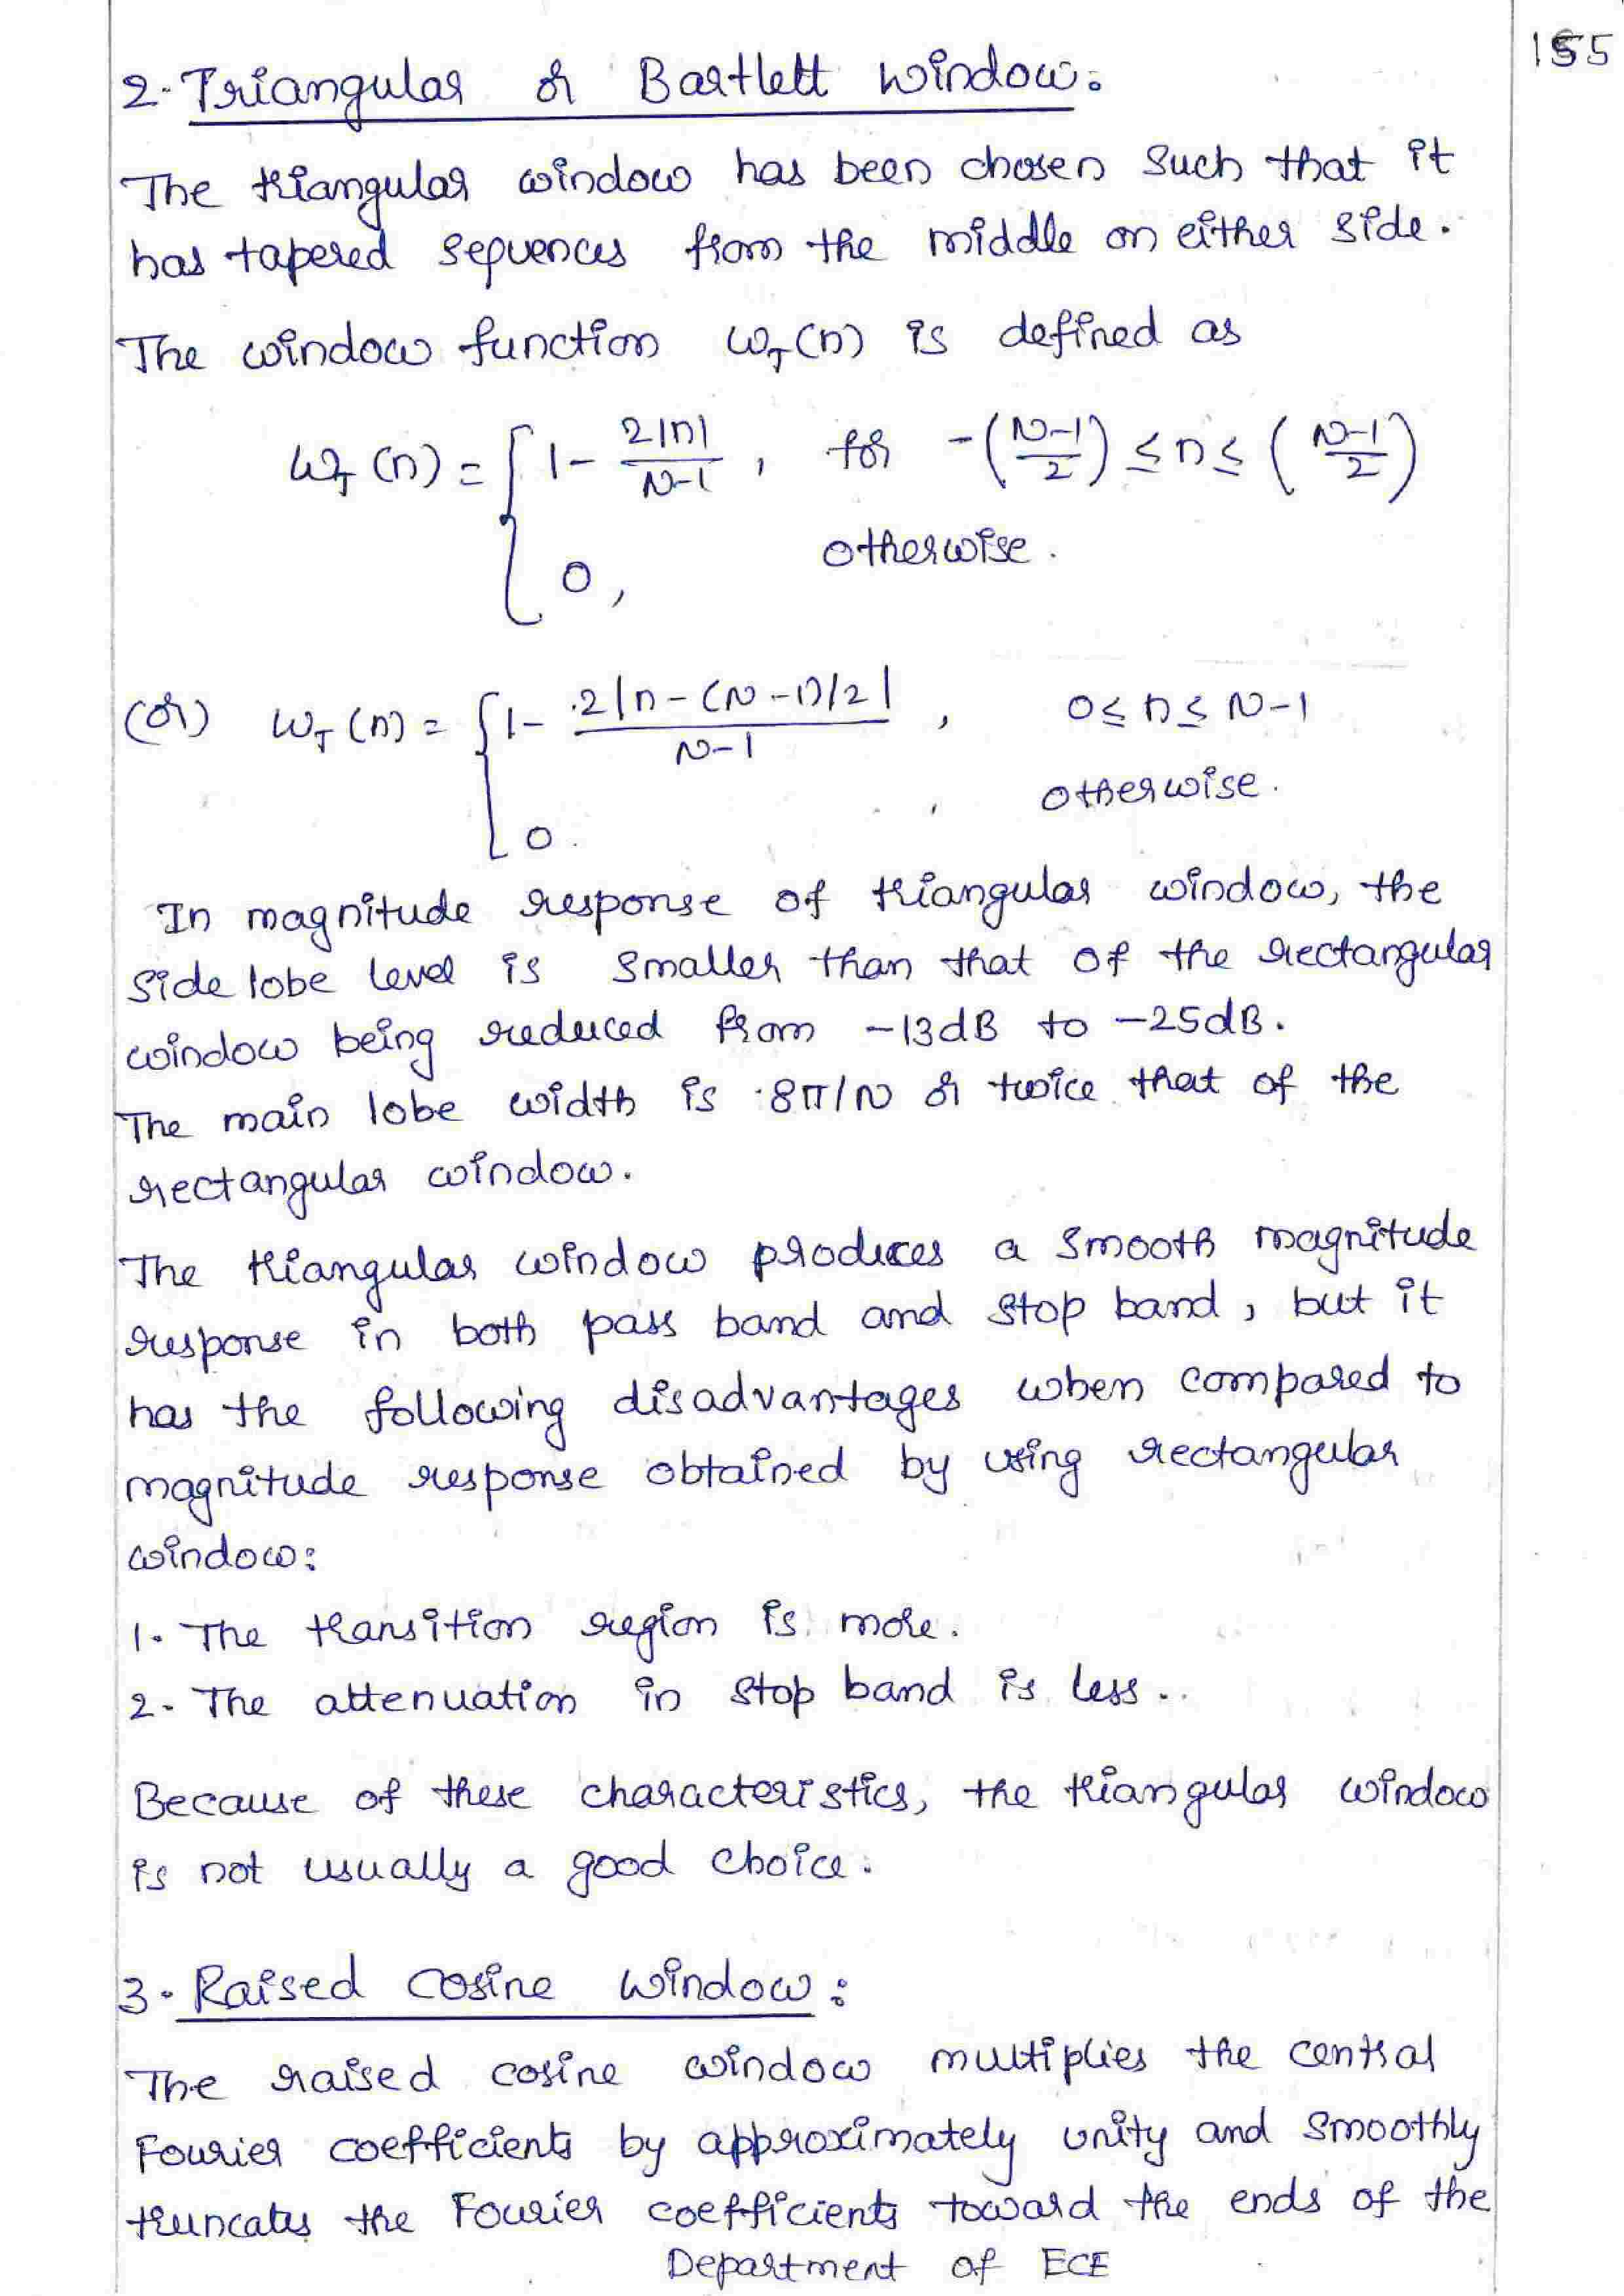 155
2. Triangular or Bartlett window:
The triangular window has been chosen such that it
has tapered sequences from the middle on either side.
The window function ω_T(n) is defined as
ω_T(n) = { 1 - 2|n|/(N-1), for -((N-1)/2) ≤ n ≤ ((N-1)/2)
0, otherwise.
(or) ω_T(n) = { 1 - 2|n-(N-1)/2|/(N-1), 0 ≤ n ≤ N-1
0, otherwise.
In magnitude response of triangular window, the
side lobe level is smaller than that of the rectangular
window being reduced from -13dB to -25dB.
The main lobe width is 8π/N or twice that of the
rectangular window.
The triangular window produces a smooth magnitude
response in both pass band and stop band, but it
has the following disadvantages when compared to
magnitude response obtained by using rectangular
window:
1. The transition region is more.
2. The attenuation in stop band is less.
Because of these characteristics, the triangular window
is not usually a good choice.
3. Raised cosine window:
The raised cosine window multiplies the central
Fourier coefficients by approximately unity and smoothly
truncates the Fourier coefficients toward the ends of the
Department of ECE